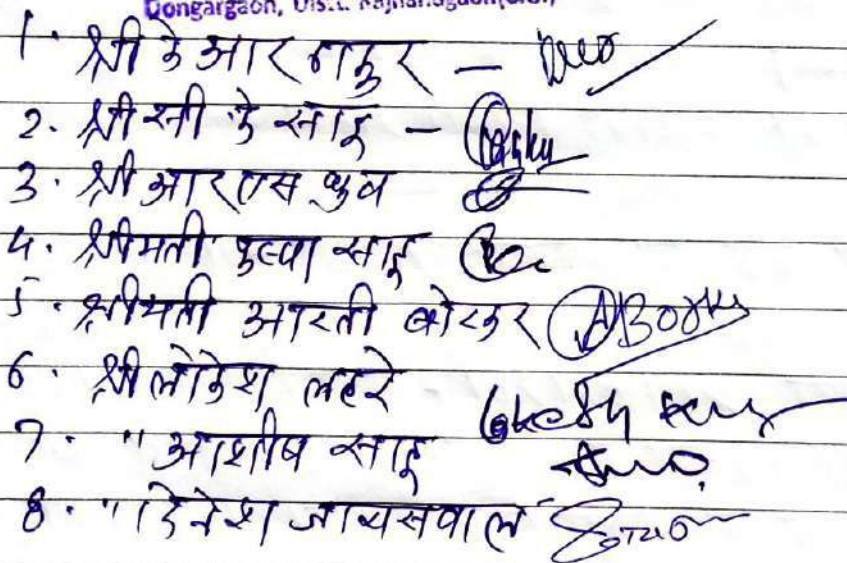 Dongargaon, Dist. Rajnandgaon(C.G.)
1. श्री के आर ठाकुर -
2. श्री सी के साहू -
3. श्री आर एस ध्रुव
4. श्रीमती पुष्पा साहू
5. श्रीमती आरती बोरकर
6. श्री लोकेश लहरे
7. " आशीष साहू
8. " दिनेश जायसवाल